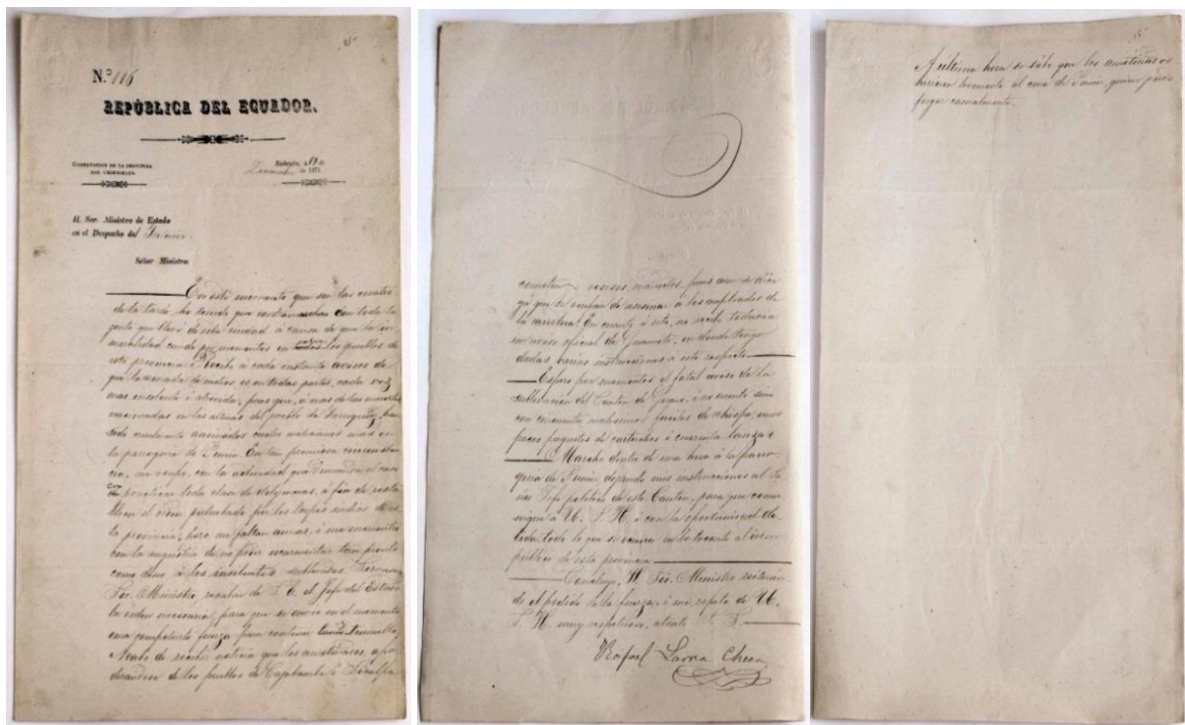 N.º 116
REPÚBLICA DEL ECUADOR.
GOBERNACION DE LA PROVINCIA
DEL CHIMBORAZO.
Riobamba, á 19 de
Diciembre de 1871.
H. Sor. Ministro de Estado
en el Despacho del Interior.
Señor Ministro:
En este momento que son las cuatro
de la tarde, he tenido que contramarchar con toda la
gente que llevé de esta ciudad á causa de que la in
moralidad cunde por momentos en todos los pueblos de
esta provincia. Recibo á cada instante avisos de
que la asonada de indios es en todas partes, cada vez
mas insolente i atrevida, pues que, á mas de las muertes
ocasionadas en las alturas del pueblo de Yaruquíes, han
sido asesinados cuales mas en
la parroquia de Punin. En tan premiosa circunstan
cia, me ocupo, con la actividad que demanda el caso
en practicar toda clase de dilijencias, á fin de resta
blecer el orden perturbado por los indios de es
ta provincia; pero me faltan armas, i me encuentro
con la angustia de no poder escarmentar tan pronto
como debo á los insolentes sublevados.
Sor. Ministro, recabar de S. E. el Jefe del Estado
la orden necesaria, para que se envie en el momento
una competente fuerza para contener
Acabo de recibir noticia que los amotinados, apo
derándose de los pueblos de Cajabamba i Sicalpa
cometen excesos inauditos, pues aun se dice
ya que se ocupan de asesinar á los empleados de
la carretera. En cuanto á esto, no recibo todavia
un aviso oficial de Guamote, en donde tengo
dadas varias instrucciones á este respecto.
Espero por momentos el fatal aviso de la
sublevacion del Canton de Guano, i no cuento sino
con cincuenta malisimos fusiles de chispa, unos
pocos paquetes de cartuchos i cuarenta lanzas
Marcho dentro de una hora á la parro
quia de Punin, dejando mis instrucciones al Se
ñor Jefe político de este Canton, para que comu
nique á U. S. H. i con la oportunidad de
bida todo lo que se ocurra en lo tocante al orden
público de esta provincia.
Concluyo, H. Sor. Ministro reiterán
dole el pedido de la fuerza, i me repito de U.
S. H. muy respetuoso, atento S. S.
Rafael Larrea Checa
A última hora se sabe que los amotinados
hirieron levemente al cura de Punin, quien pudo
fugar casualmente.